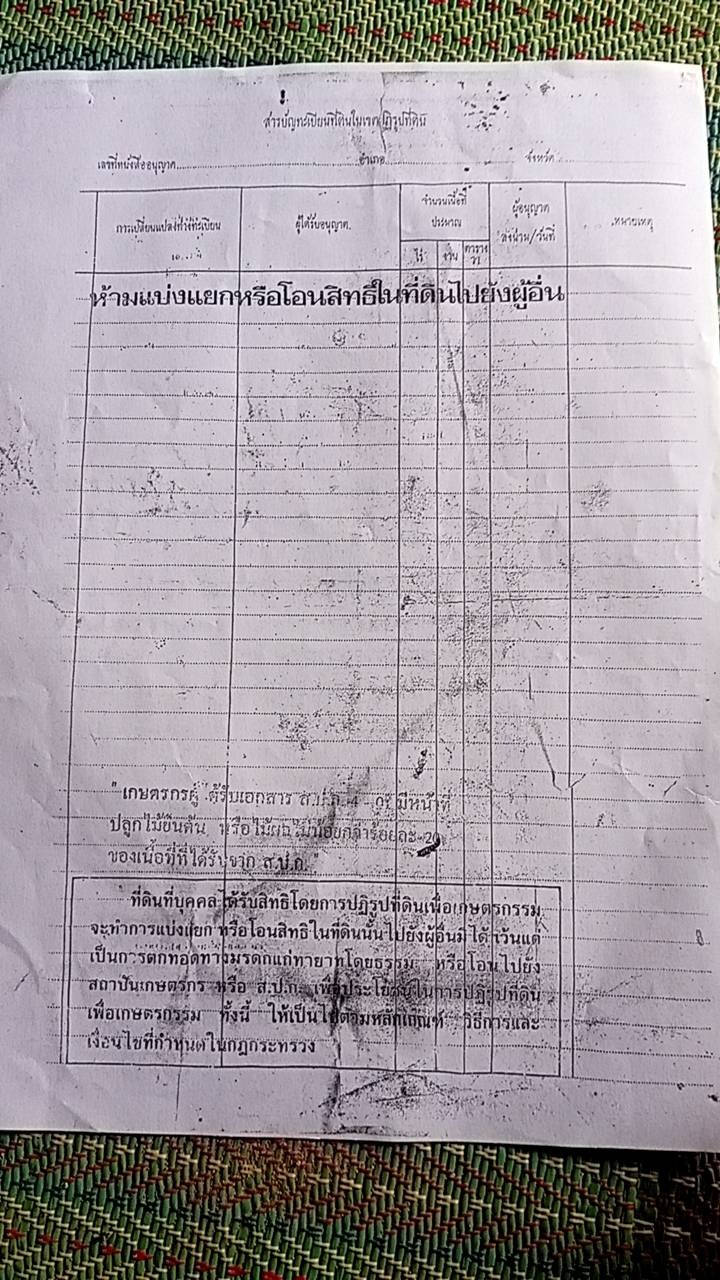 สารบัญทะเบียนที่ดินในเขตปฏิรูปที่ดิน
เลขที่หนังสืออนุญาต อำเภอ จังหวัด
การเปลี่ยนแปลงทางทะเบียน
ผู้ได้รับอนุญาต
จำนวนเนื้อที่
ประมาณ
ไร่ งาน ตาราง
วา
ผู้อนุญาต
ลงนาม/วันที่
หมายเหตุ
ห้ามแบ่งแยกหรือโอนสิทธิในที่ดินไปยังผู้อื่น
"เกษตรกรผู้ได้รับเอกสาร ส.ป.ก. 4 - 01 มีหน้าที่
ปลูกไม้ยืนต้น หรือไม้ผลไม่น้อยกว่าร้อยละ 20
ของเนื้อที่ที่ได้รับจาก ส.ป.ก."
ที่ดินที่บุคคลได้รับสิทธิโดยการปฏิรูปที่ดินเพื่อเกษตรกรรม
จะทำการแบ่งแยก หรือโอนสิทธิในที่ดินนั้นไปยังผู้อื่นมิได้ เว้นแต่
เป็นการตกทอดทางมรดกแก่ทายาทโดยธรรม หรือโอนไปยัง
สถาบันเกษตรกร หรือ ส.ป.ก. เพื่อประโยชน์ในการปฏิรูปที่ดิน
เพื่อเกษตรกรรม ทั้งนี้ ให้เป็นไปตามหลักเกณฑ์ วิธีการและ
เงื่อนไขที่กำหนดในกฎกระทรวง